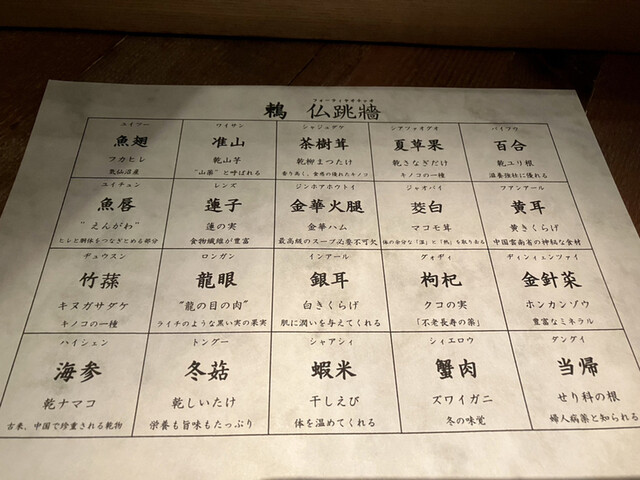 フォーティャオチァン
鶫 仏跳牆
ユイツー
魚翅
フカヒレ
気仙沼産
ワイサン
准山
乾山芋
"山薬"と呼ばれる
シャジュグゥ
茶樹茸
乾柳まつたけ
香り高く、食感の優れたキノコ
シアツァオグオ
夏草果
乾きなぎだけ
キノコの一種
バイフウ
百合
乾ユリ根
滋養強壮に優れる
ユイチュン
魚唇
"えんがわ"
ヒレと胴体をつなぎとめる部分
レンズ
蓮子
蓮の実
食物繊維が豊富
ジンホアホウトイ
金華火腿
金華ハム
最高級のスープ必要不可欠
ジャオバイ
茭白
マコモ茸
体の余分な「湿」と「熱」を取りさる
フアンアール
黄耳
黄きくらげ
中国雲南省の神秘な食材
ヂュウスン
竹蓀
キヌガサダケ
キノコの一種
ロンガン
龍眼
"龍の目の肉"
ライチのような黒い実の果実
インアール
銀耳
白きくらげ
肌に潤いを与えてくれる
グォヂィ
枸杞
クコの実
「不老長寿の薬」
ヂィンィェンツァイ
金針菜
ホンカンゾウ
豊富なミネラル
ハイシェン
海参
乾ナマコ
古来、中国で珍重される乾物
トングー
冬菇
乾しいたけ
栄養も旨味もたっぷり
シャアシィ
蝦米
干しえび
体を温めてくれる
シィエロウ
蟹肉
ズワイガニ
冬の味覚
ダングイ
当帰
せり科の根
婦人病薬と知られる